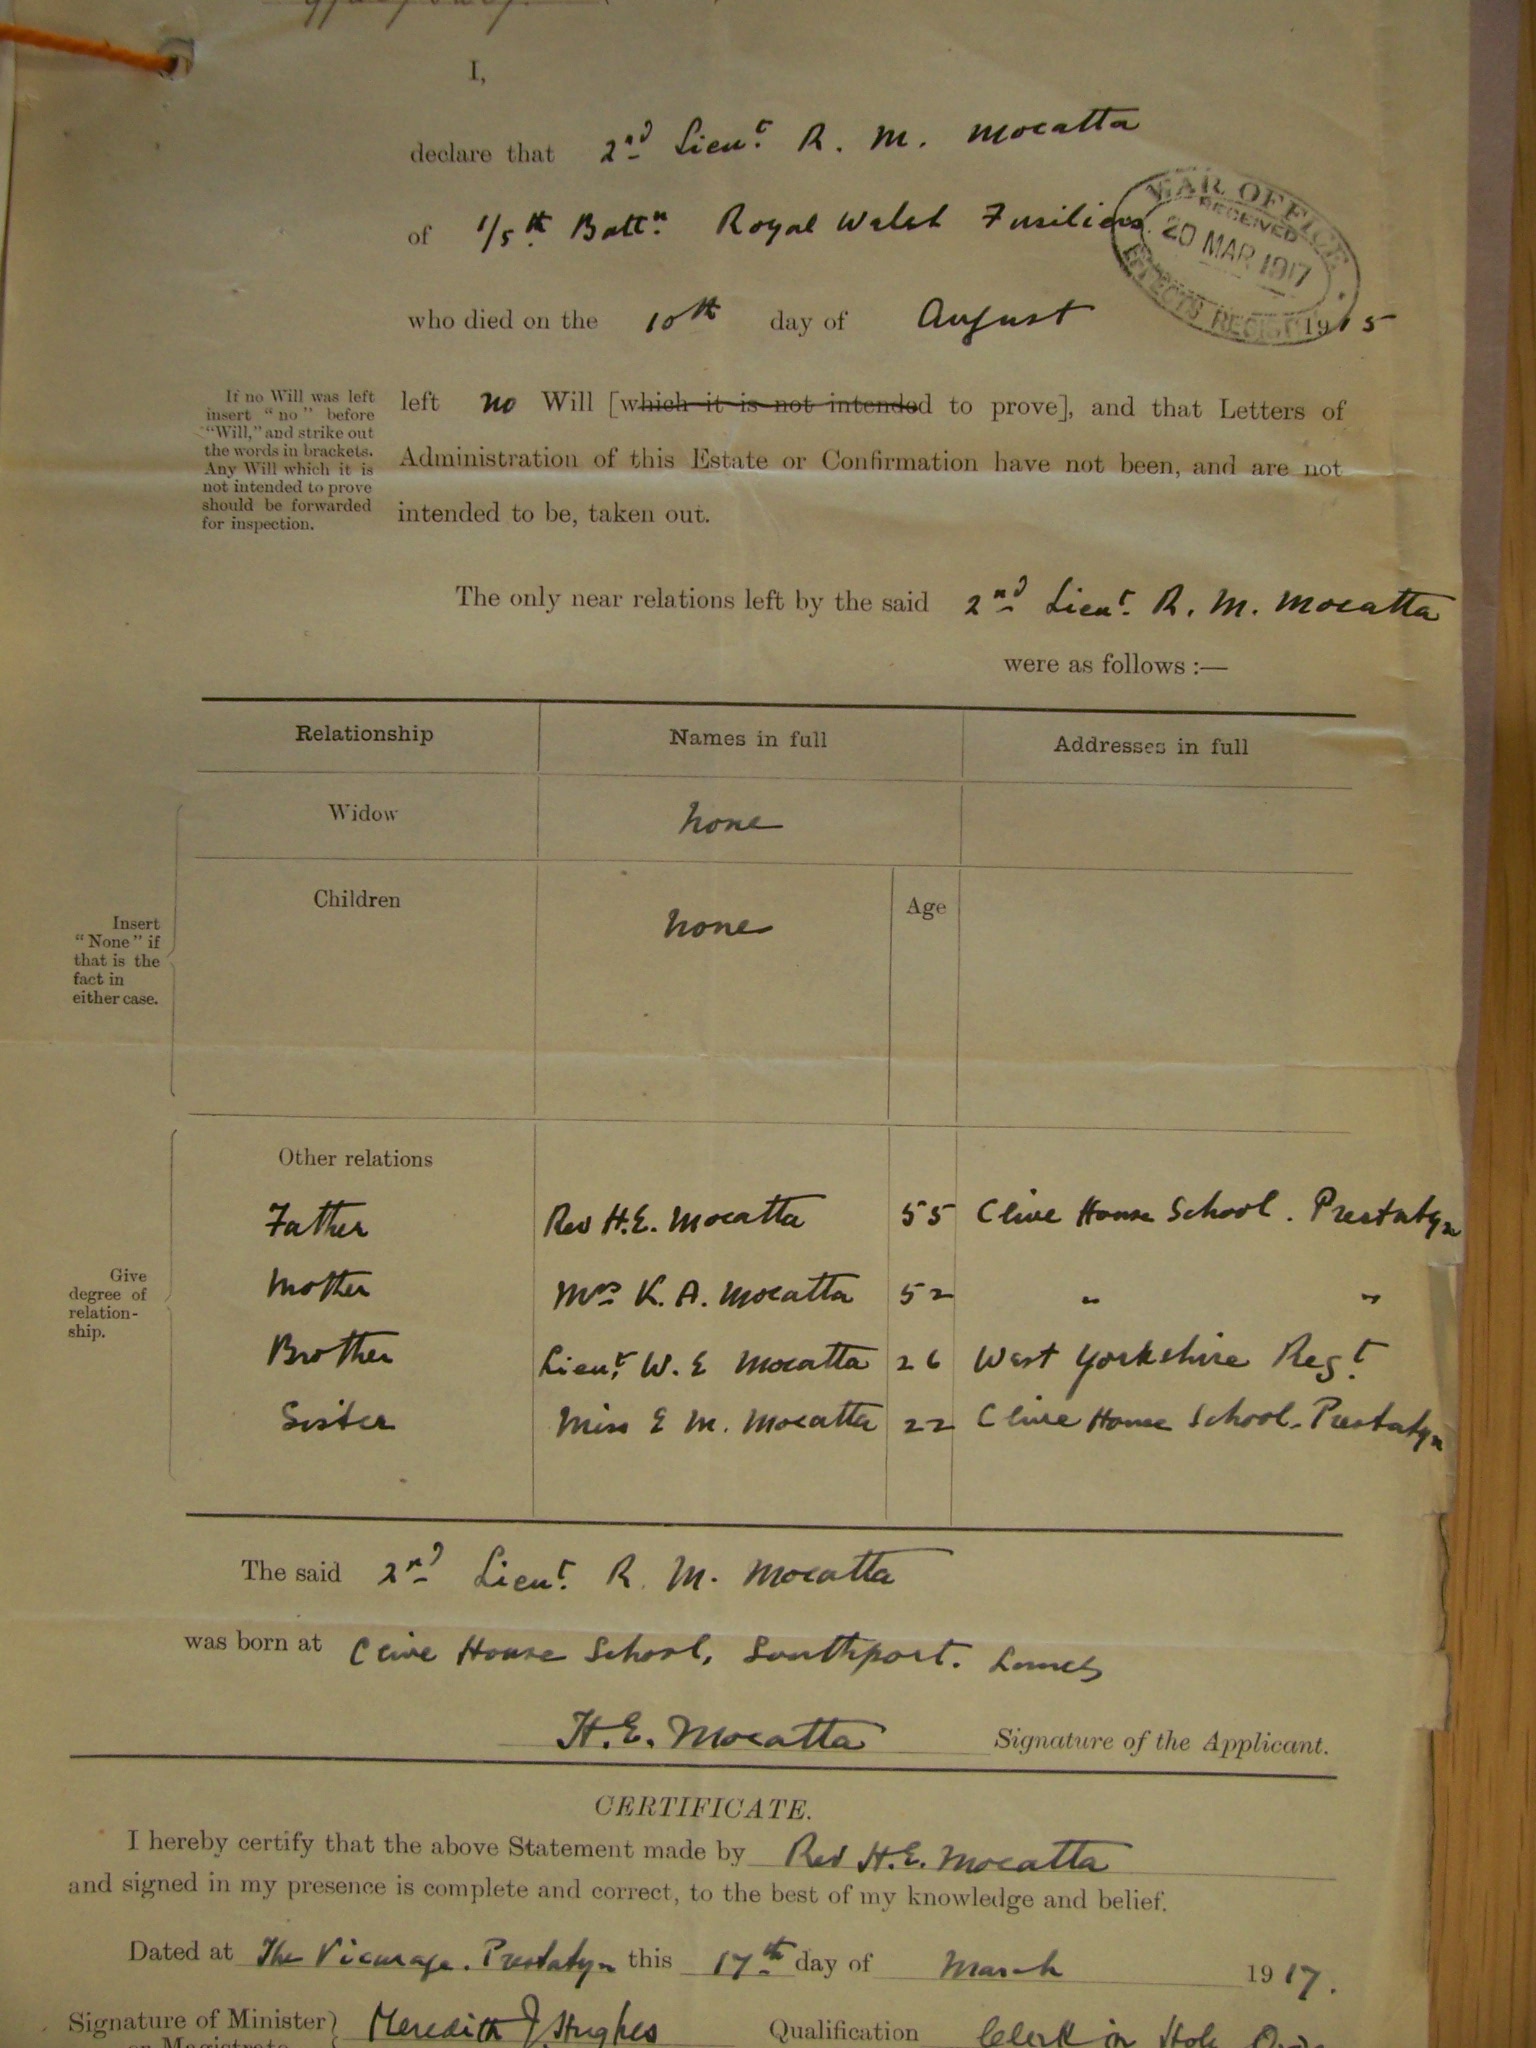 I,
declare that 2nd Lieut. R. M. Mocatta
of 1/5th Battn Royal Welsh Fusiliers.
WAR OFFICE
RECEIVED
20 MAR 1917
EFFECTS REGIST
who died on the 10th day of August 1915
If no Will was left
insert "no" before
"Will," and strike out
the words in brackets.
Any Will which it is
not intended to prove
should be forwarded
for inspection.
left no Will [which it is not intended to prove], and that Letters of
Administration of this Estate or Confirmation have not been, and are not
intended to be, taken out.
The only near relations left by the said 2nd Lieut. R. M. Mocatta
were as follows :—
Relationship Names in full Addresses in full
Widow none
Children none Age
Insert
"None" if
that is the
fact in
either case.
Other relations
Father Rev H.E. Mocatta 55 Clive House School. Prestatyn
Mother Mrs K. A. Mocatta 52 " "
Brother Lieut. W. E Mocatta 26 West Yorkshire Regt.
Sister Miss E M. Mocatta 22 Clive House School. Prestatyn
Give
degree of
relation-
ship.
The said 2nd Lieut. R. M. Mocatta
was born at Clive House School, Southport. Lancs
H. E. Mocatta Signature of the Applicant.
CERTIFICATE.
I hereby certify that the above Statement made by Rev H.E. Mocatta
and signed in my presence is complete and correct, to the best of my knowledge and belief.
Dated at The Vicarage. Prestatyn this 17th day of March 1917.
Signature of Minister Meredith J Hughes Qualification Clerk in Holy
or Magistrate